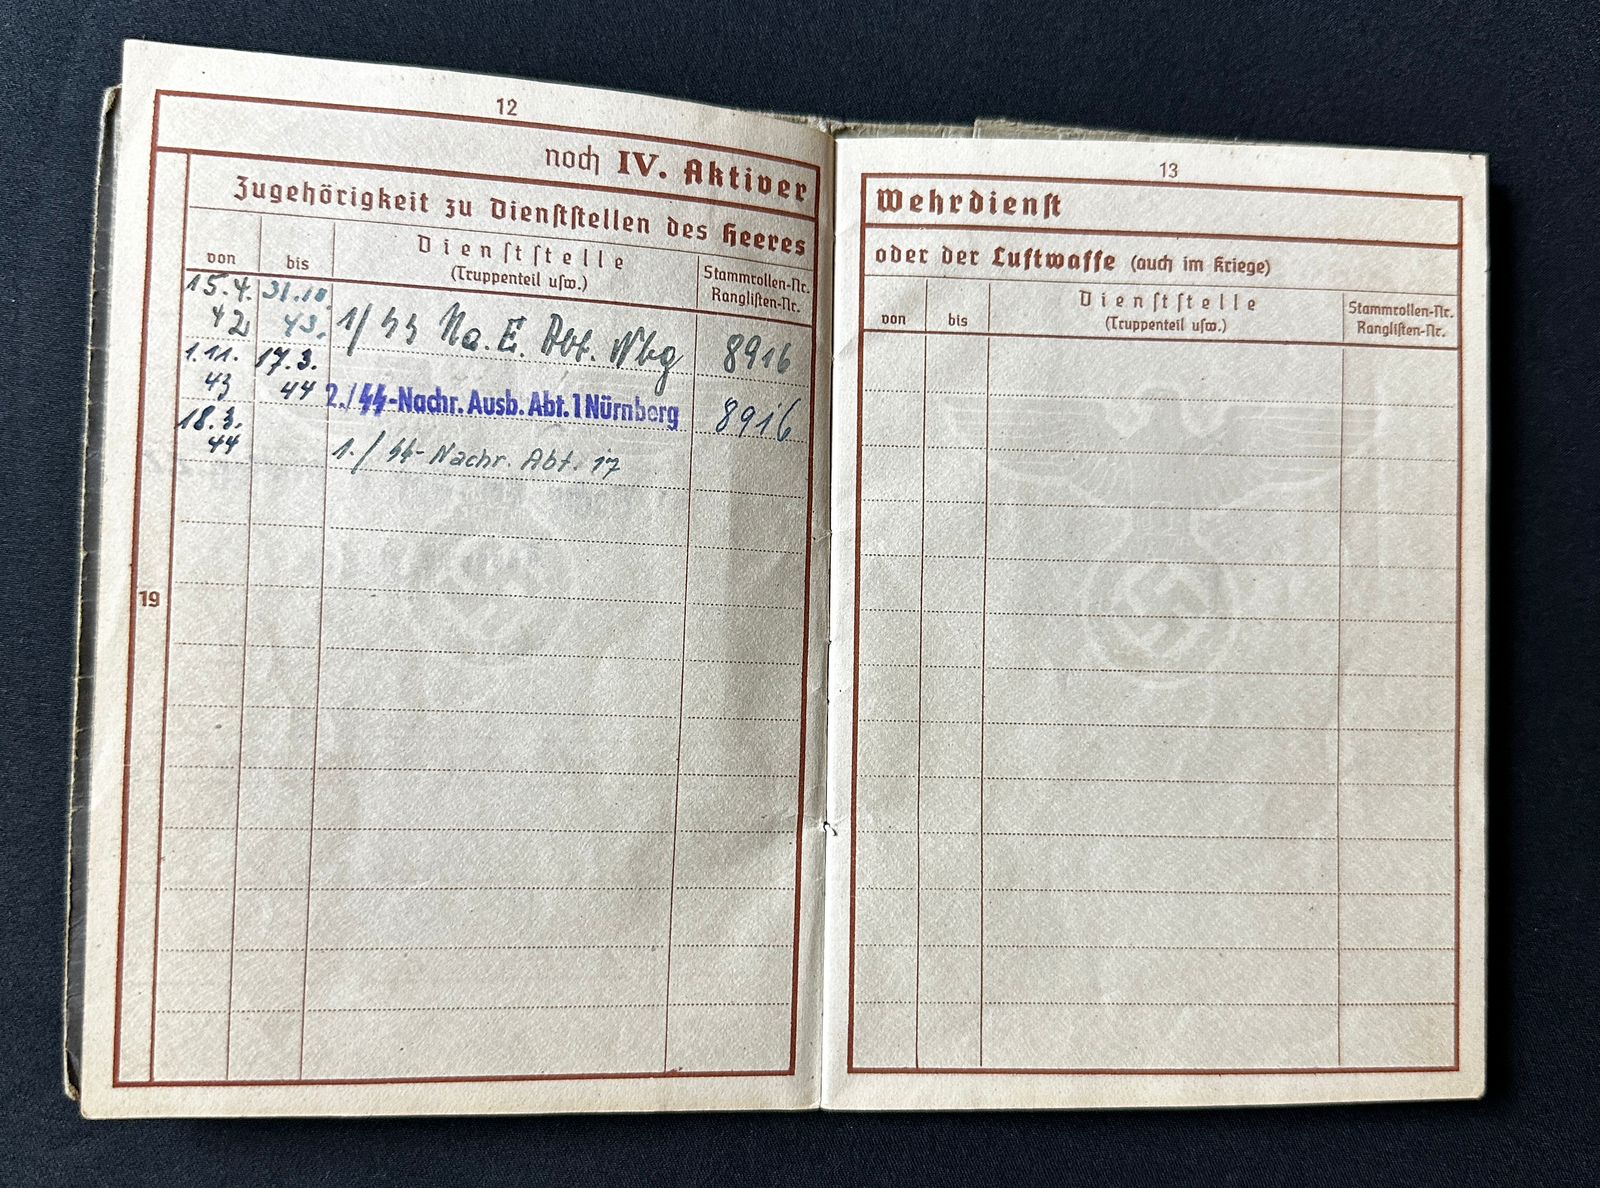 12
noch IV. Aktiver
Zugehörigkeit zu Dienststellen des Heeres
von bis Dienststelle (Truppenteil usw.) Stammrollen-Nr. Ranglisten-Nr.
15.4. 42 31.10. 43. 1/ SS Na. E. Abt. Nbg 8916
1.11. 43 17.3. 44 2./SS-Nachr. Ausb. Abt. 1 Nürnberg 8916
18.3. 44 1./ SS-Nachr. Abt. 17
19
13
Wehrdienst
oder der Luftwaffe (auch im Kriege)
von bis Dienststelle (Truppenteil usw.) Stammrollen-Nr. Ranglisten-Nr.